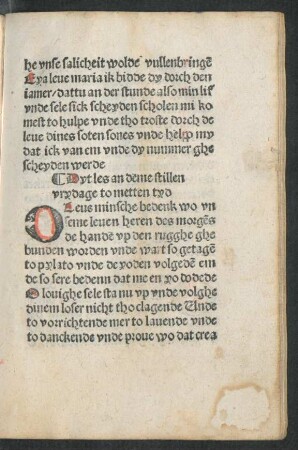 he vnse salicheit wolde vullenbringē
Eya leue maria ik bidde dy dorch den
iamer/dattu an der stunde also min lif
vnde sele sick scheyden scholen mi ko
mest to hulpe vnde tho troste dorch de
leue dines soten sones vnde help my
dat ick van em vnde dy nummer ghe
scheyden werde
Dyt les an deme stillen
vrydage to metten tyd
O Leue minsche bedenk wo vn
seme leuen heren des morgēs
de hande vp den rugghe ghe
bunden worden vnde wart so getagē
to pylato vnde de yoden volgedē em
de so sere bedenn dat me en yo dodede
O louighe sele sta nu vp vnde volghe
dinem loser nicht tho clagende Unde
to vorrichtende mer to lauende vnde
to danckende vnde proue wo dat crea